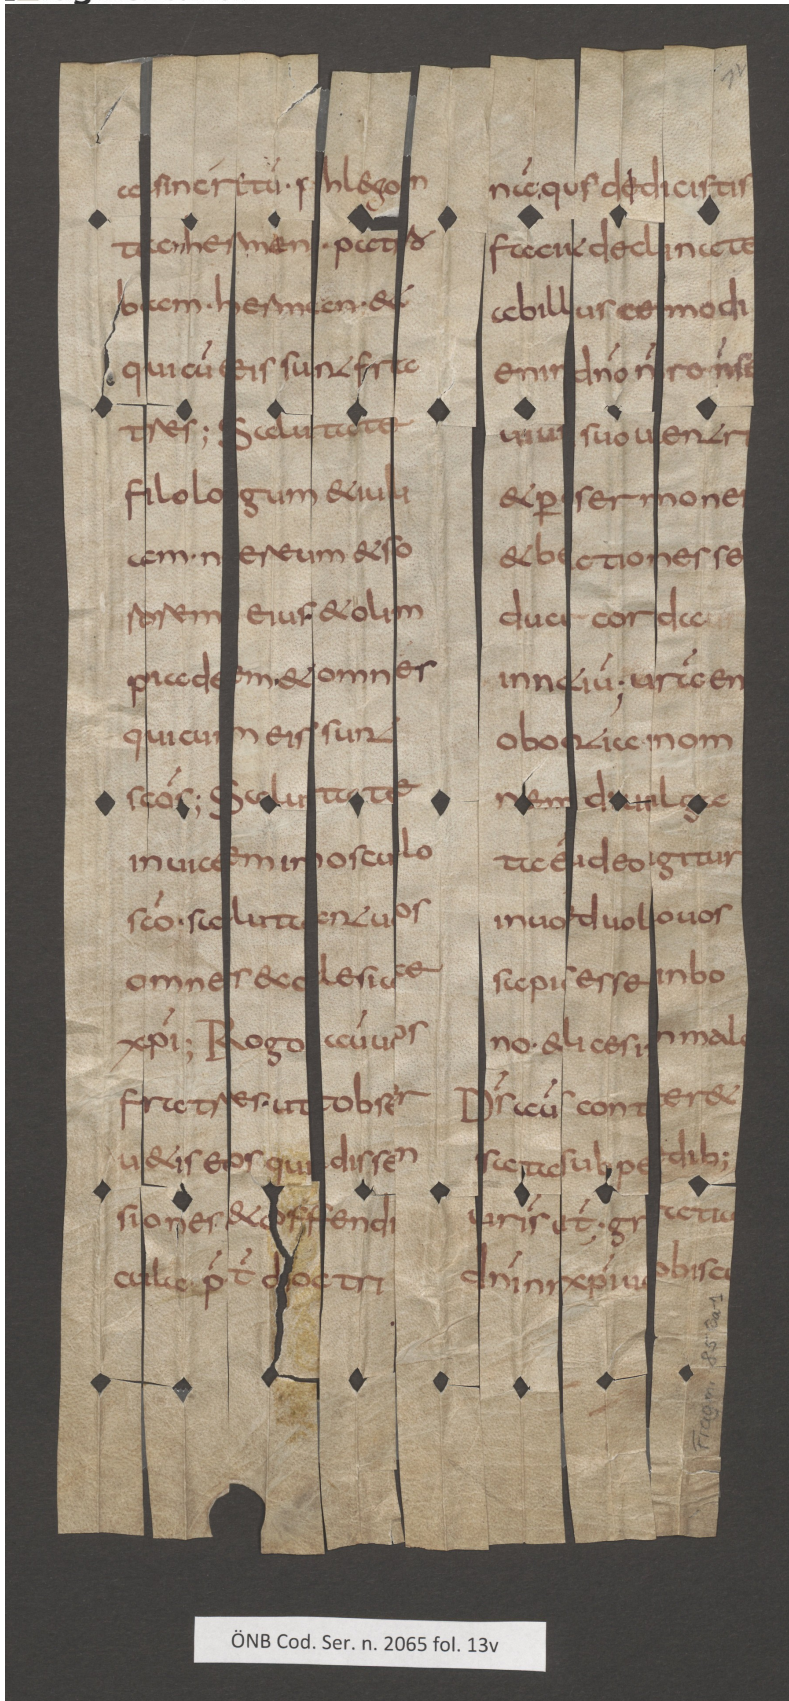 a sincritũ · phlegon
ta hermen · patro
bam · herman · &
qui cũ eis sunt fra
tres ; Salutate
filologum & iuli
am · nereum & so
rorem eius & olim
piadem · & omnes
qui cum eis sunt
scós ; Salutate
inuicem in osculo
scó · salutant uos
omnes ecclesiae
xp̃i ; Rogo aũ uos
fratres · ut obser
u&is eos qui dissen
siones & offendi
cula p̃t doctri
dedicistis
declinate
ab illius ce modi
eni dño ñro ñ se
uiu suo uentri
& p̱ sermone
& be ctiones se
duc cor da
inn tiũ ; urã en
oboe tia in om
nem diuulga
ta ẽ ideo igitur
in uo uolo uos
sapi esse in bo
no · & in malo
D̃s aũ conter&
sata sub pedib;
uris gratia
dñi nr xp̃i uobiscũ
Fragm.
ÖNB Cod. Ser. n. 2065 fol. 13v